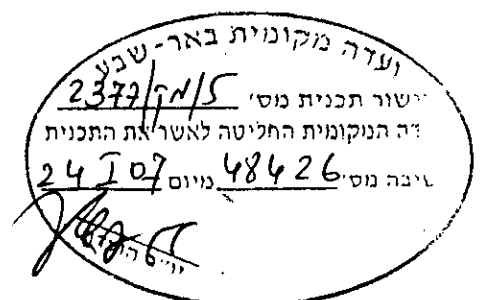 ועדה מקומית באר-שבע
אישור תכנית מס' 5/מק/2377
ועדה המקומית החליטה לאשר את התכנית
בישיבה מס' 48426 מיום 24 I 07
יו"ר